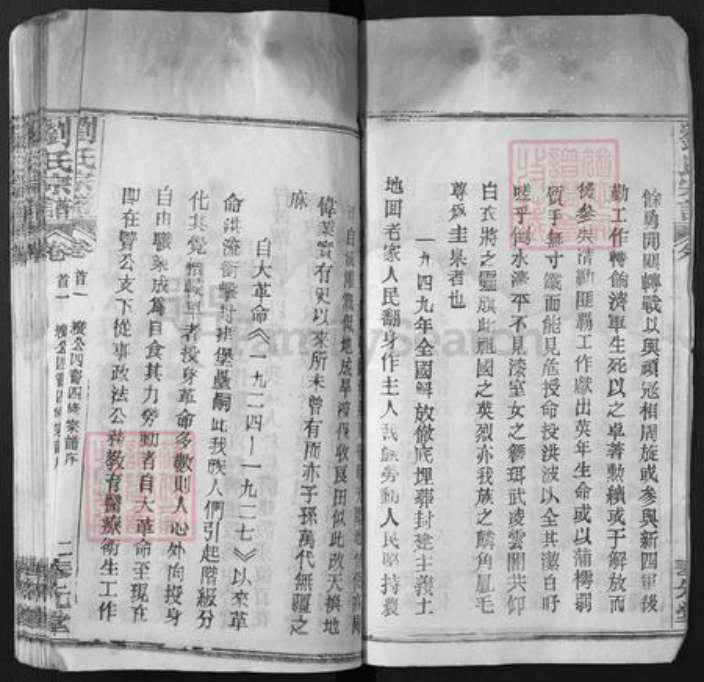 餘勇間關轉戰以與頑冦相周旋或參與新四軍後
勤工作轉餉濟軍生死以之卓著勲績或于解放而
後參與清勦匪覇工作獻出英年生命或以蒲樗弱
質手無寸鐵而能見危授命投洪波以全其潔白吁
嗟乎倒水漾平不見漆室女之簪珥武凌雲開共仰
白衣將之靈旗此祖國之英烈亦我族之麟角鳳毛
尊爲圭臬者也
一九四九年全國解放徹底埋葬封建主義土
地囬老家人民翻身作主人我族勞動人民堅持農
收良田似此改天換地
偉業實有史以來所未曾有而亦子孫萬代無疆之
庥
自大革命《一九二四—一九二七》以來革
命洪流衝擊封建堡壘嗣此我族人們引起階級分
化其覺悟較早者投身革命多數則人心外向投身
自由職業成爲自食其力勞動者自大革命至現在
即在賢公支下從事政法公務教育醫療衛生工作
劉氏宗譜
卷首一
公四齋四修宗譜序
二
劉氏宗譜
卷
首一